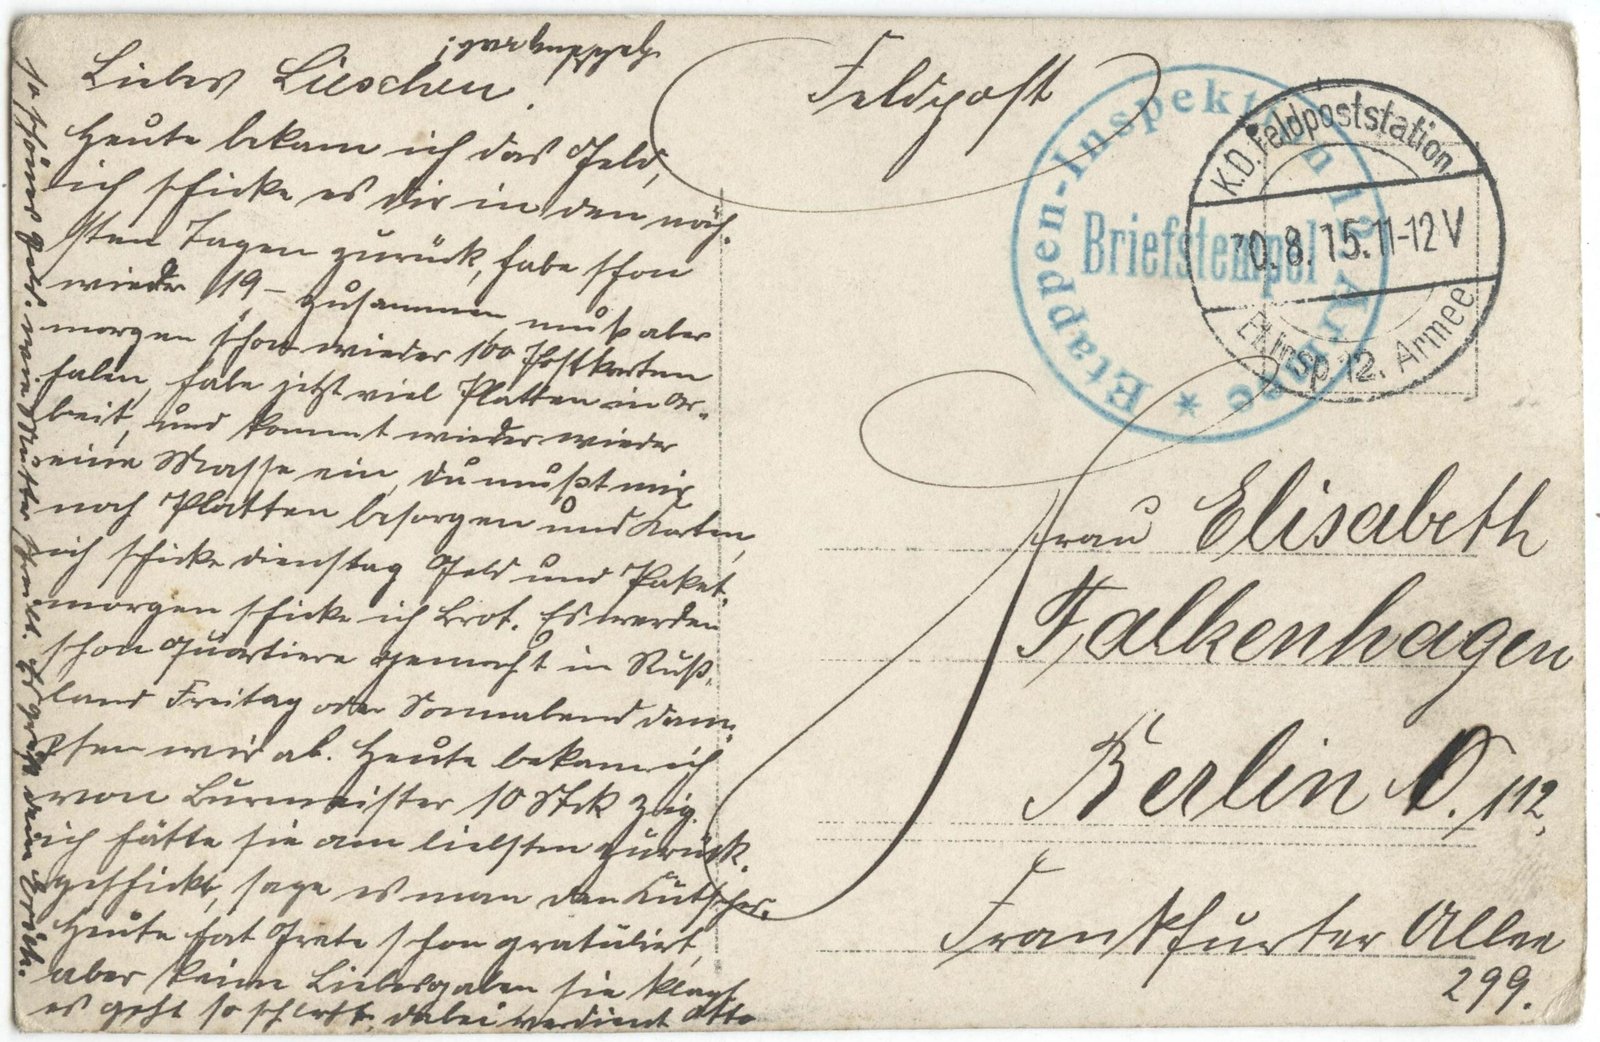 Liebes Lieschen!
Heute bekam ich das Geld,
ich schicke es dir in den näch-
sten Tagen zurück, habe schon
wieder 19 – zusammen, muß aber
morgen schon wieder 100 Postkarten
holen, habe jetzt viel Platten in Ar-
beit, und kommt wieder wieder
eine Masse ein, du mußt mir
noch Platten besorgen und Karten,
ich schicke dienstag Geld und Paket.
morgen schicke ich Brot. Es werden
schon Quartiere gemacht in Ruß-
land Freitag oder Sonnabend dam-
pfen wir ab. Heute bekam ich
von Burmeister 10 Stck Zig.
ich hätte sie am liebsten zurück-
geschickt, sage es man den Kutscher.
Heute hat Grete schon gratuliert,
aber keine Liebesgaben sie klagt
es geht so schlecht, dabei verdient Otto
so schönes Geld. wie Mutter schreibt. Es grüßt dein Erich.
Feldpost
Etappen-Inspektion 12. Armee
Briefstempel
K.D. Feldpoststation
10.8.15.11-12V
Et. Insp. 12. Armee
Frau Elisabeth
Falkenhagen
Berlin O. 112,
Frankfurter Allee
299.